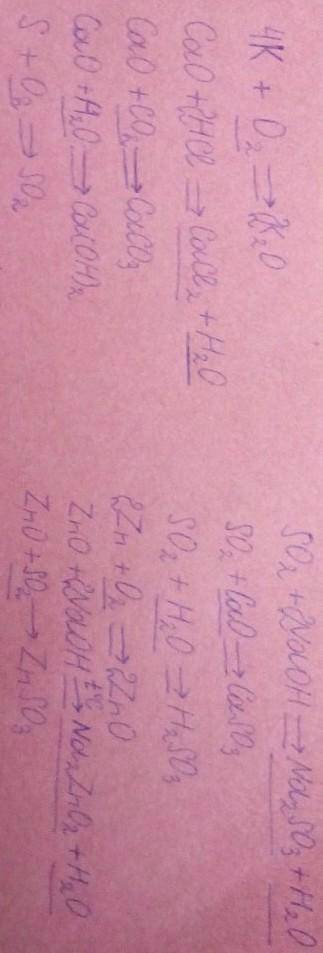 4K + O₂ ⇒ 2K₂O
CaO + 2HCl ⇒ CaCl₂ + H₂O
CaO + CO₂ ⇒ CaCO₃
CaO + H₂O ⇒ Ca(OH)₂
S + O₂ ⇒ SO₂
SO₂ + 2NaOH ⇒ Na₂SO₃ + H₂O
SO₂ + CaO ⇒ CaSO₃
SO₂ + H₂O ⇒ H₂SO₃
2Zn + O₂ ⇒ 2ZnO
ZnO + 2NaOH t°C⇒ Na₂ZnO₂ + H₂O
ZnO + SO₂ → ZnSO₃